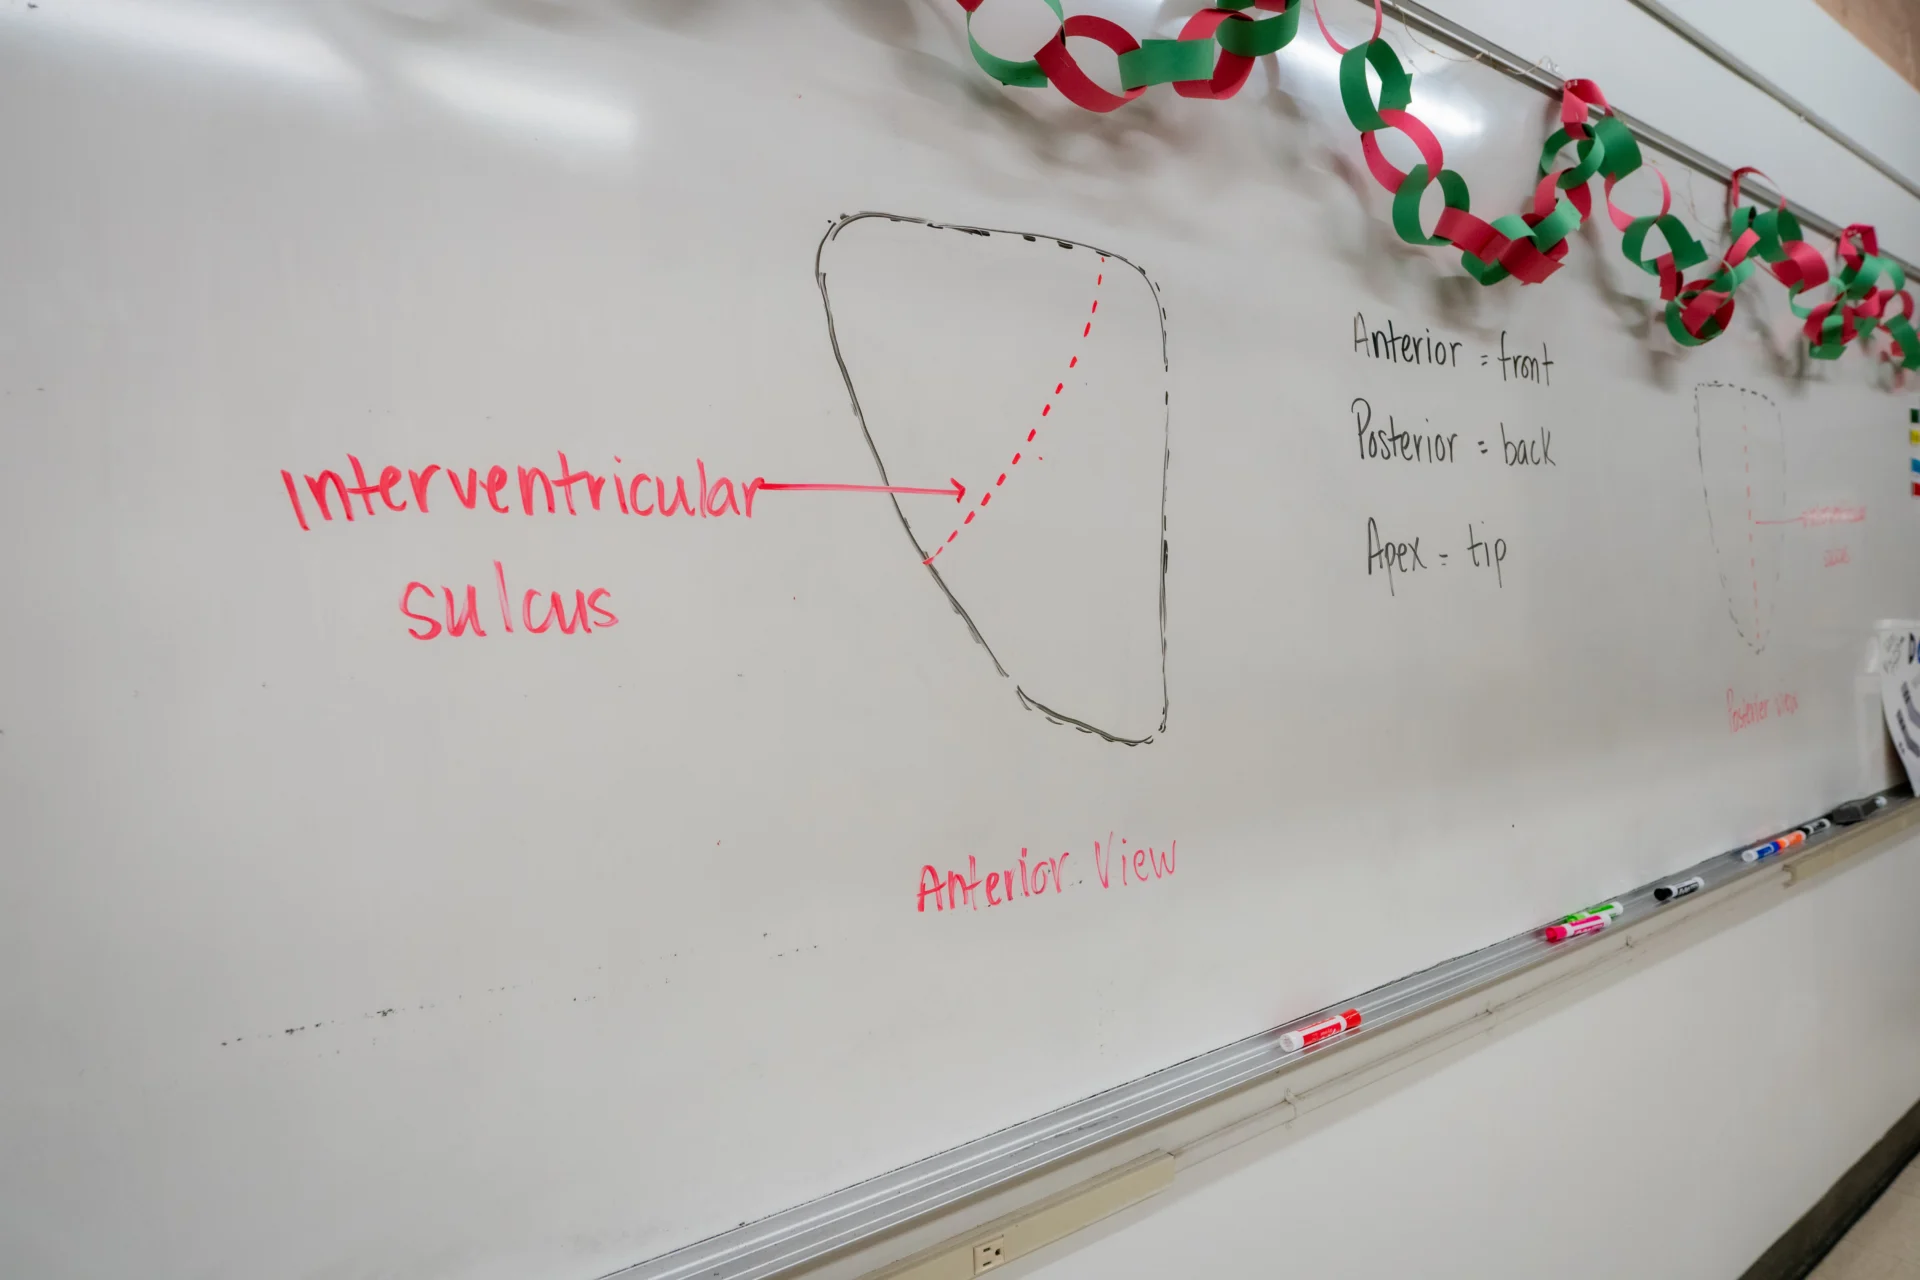 Interventricular
sulcus
Anterior View
Anterior = front
Posterior = back
Apex = tip
Posterior View